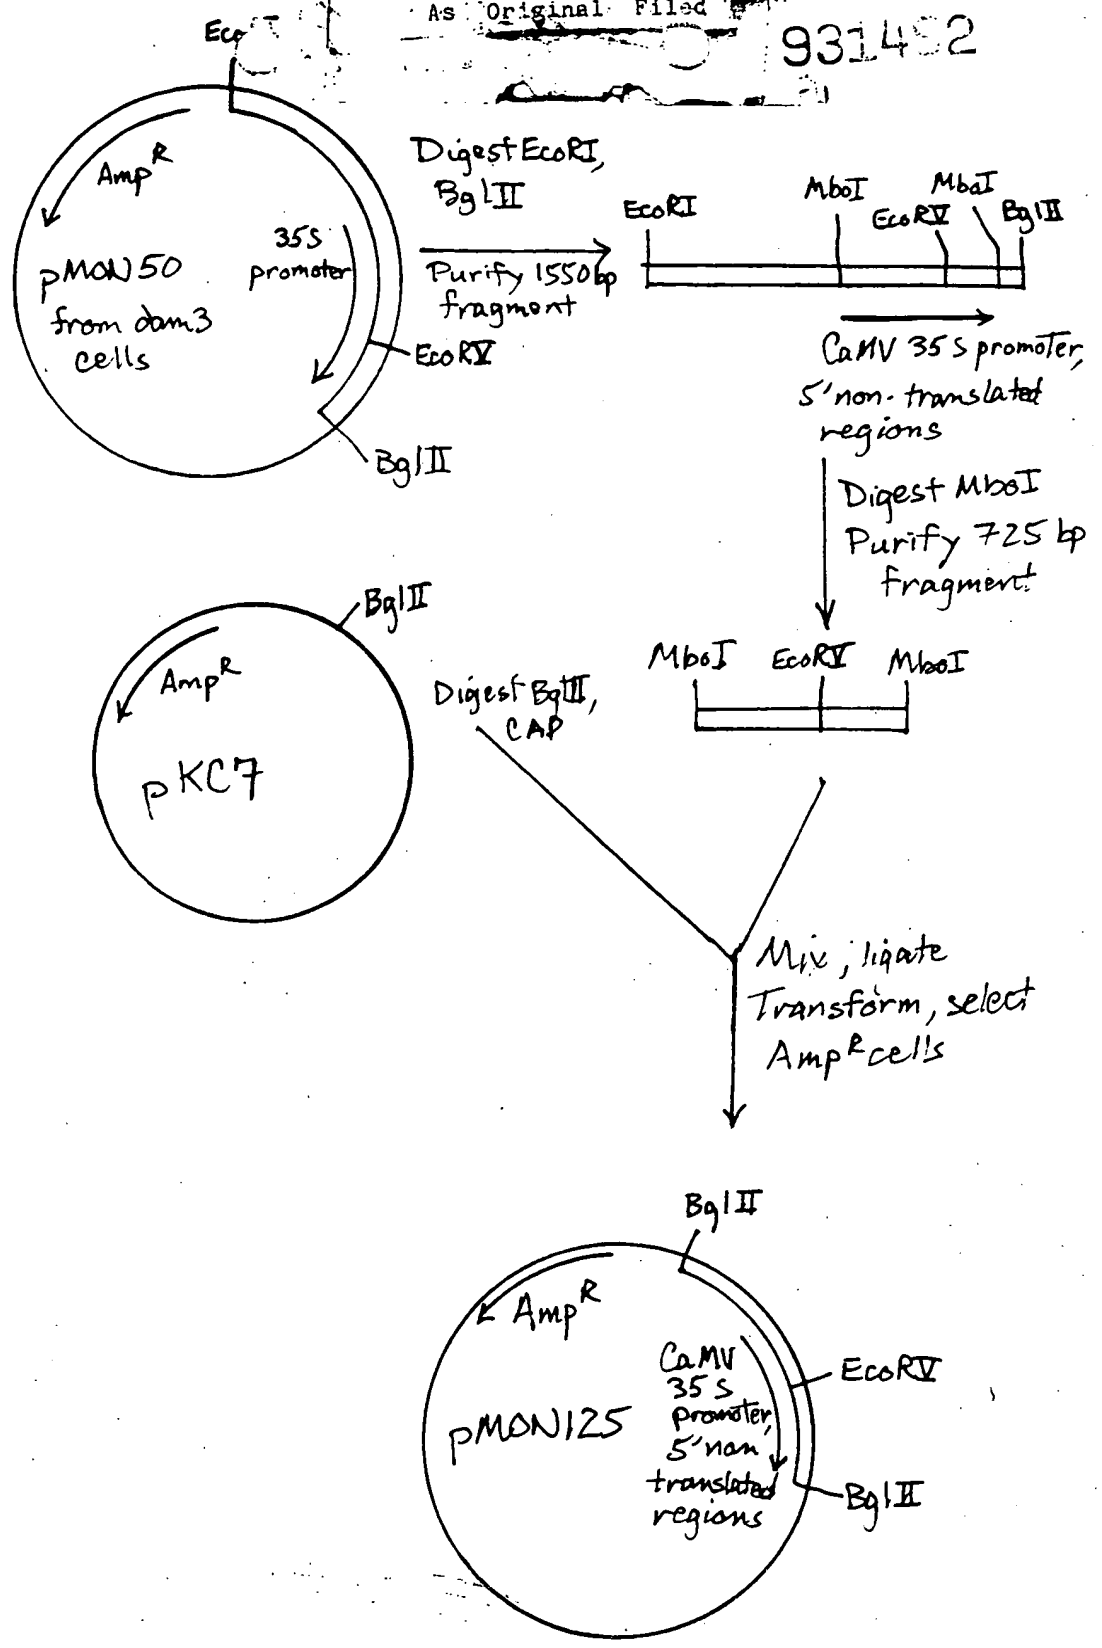 As Original Filed
Eco
AmpR
pMON50
from dam3
cells
35S
promoter
EcoRV
BglII
Digest EcoRI,
BglII
Purify 1550 bp
fragment
EcoRI
MboI
EcoRV
MboI
BglII
CaMV 35S promoter,
5' non-translated
regions
Digest MboI
Purify 725 bp
fragment
BglII
AmpR
pKC7
Digest BglII,
CAP
MboI EcoRV MboI
Mix, ligate
Transform, select
AmpR cells
BglII
AmpR
pMON125
CaMV
35S
promoter,
5' non
translated
regions
EcoRV
BglII